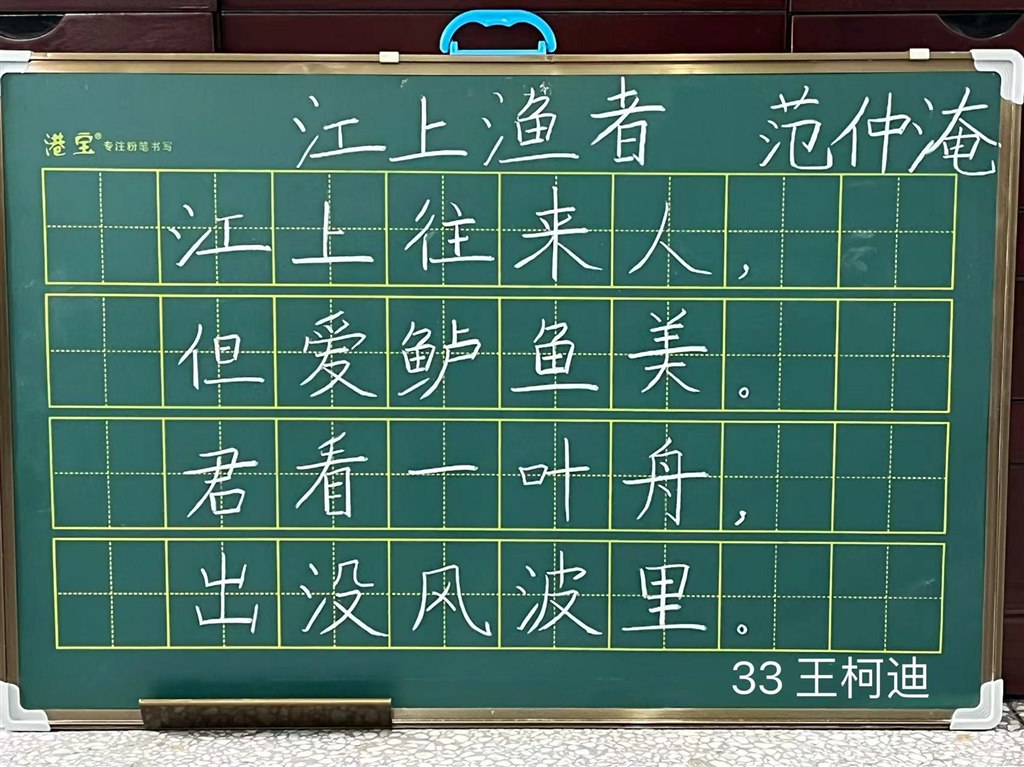 江上渔者 范仲淹
港宝® 专注粉笔书写
江上往来人，
但爱鲈鱼美。
君看一叶舟，
出没风波里。
33 王柯迪